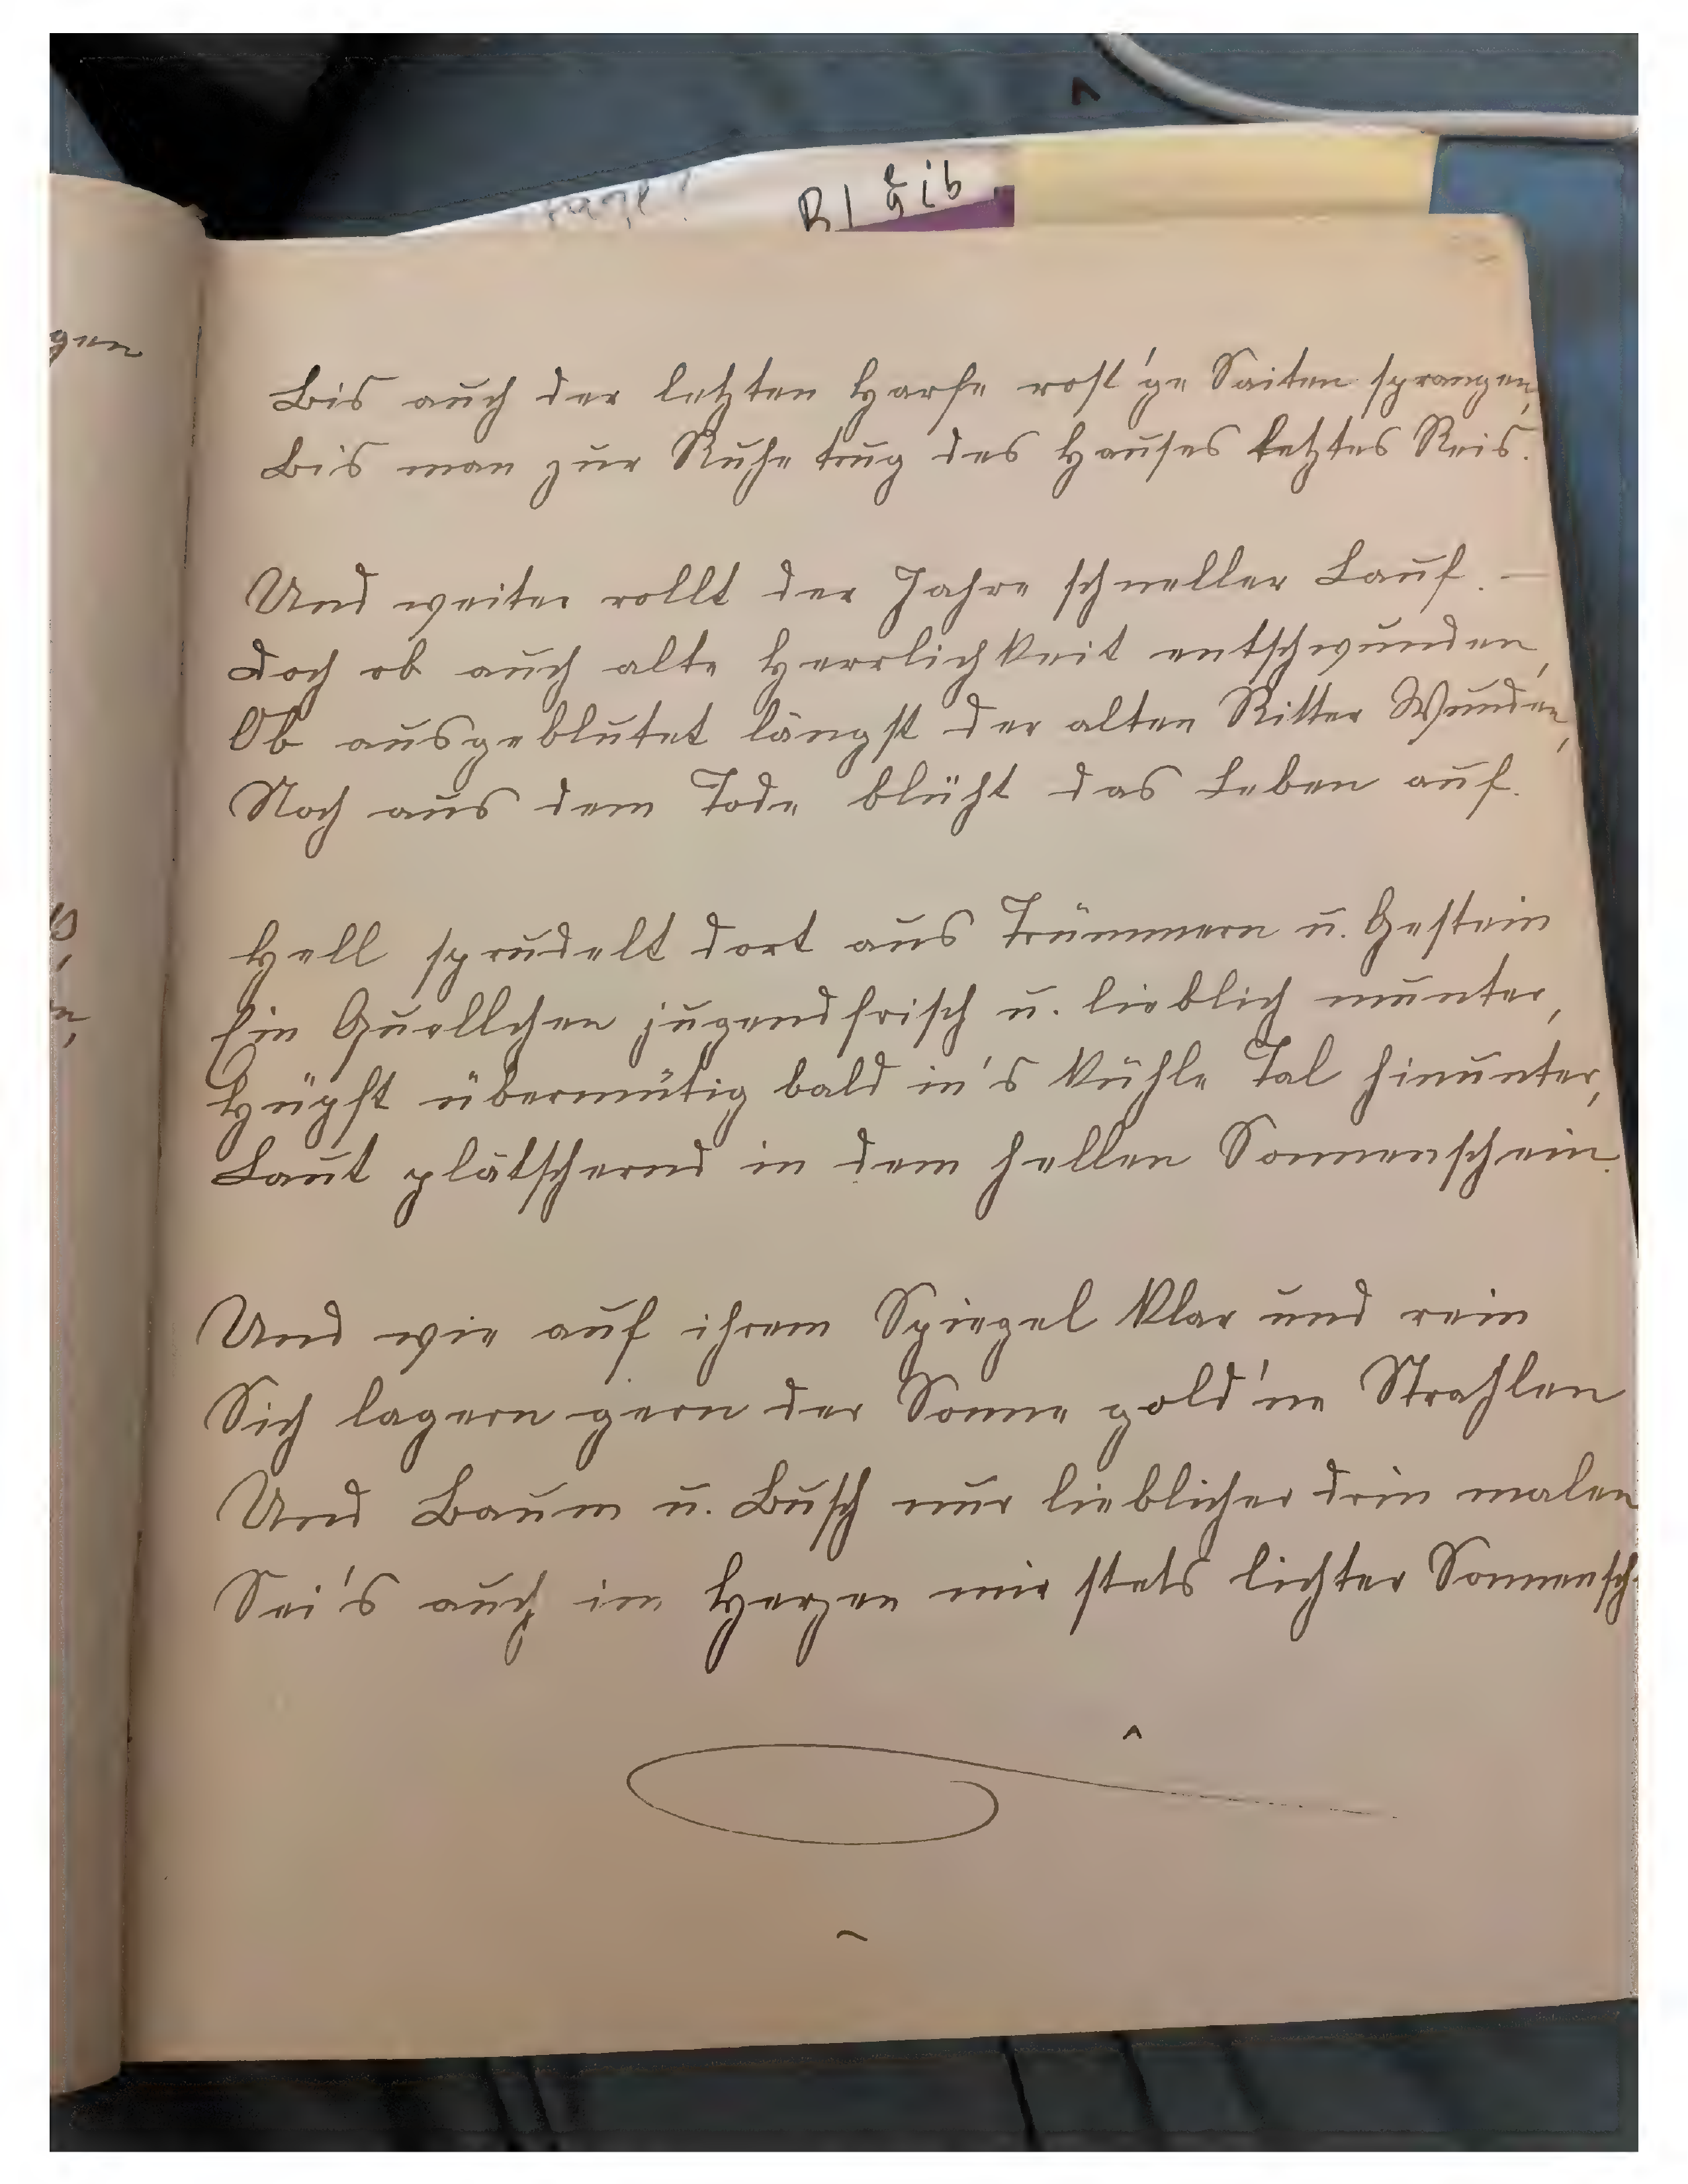 gen
Bis auch der letzten Harfe rost'ge Saiten sprangen,
Bis man zur Ruhe trug des Hauses letztes Reis.
Und weiter rollt der Jahre schneller Lauf. —
Doch ob auch alte Herrlichkeit entschwunden,
Ob ausgeblutet längst der alten Ritter Wunden,
Noch aus dem Tode blüht das Leben auf.
Hell sprudelt dort aus Trümmern u. Gestein
Ein Quellchen jugendfrisch u. lieblich munter,
Hüpft übermütig bald in's kühle Tal hinunter,
Laut plätschernd in dem hellen Sonnenschein.
Und wie auf ihrem Spiegel klar und rein
Sich lagern gern der Sonne gold'ne Strahlen
Und Baum u. Busch nur lieblicher drin malen
Sei's auch im Herzen mir stets lichter Sonnensch